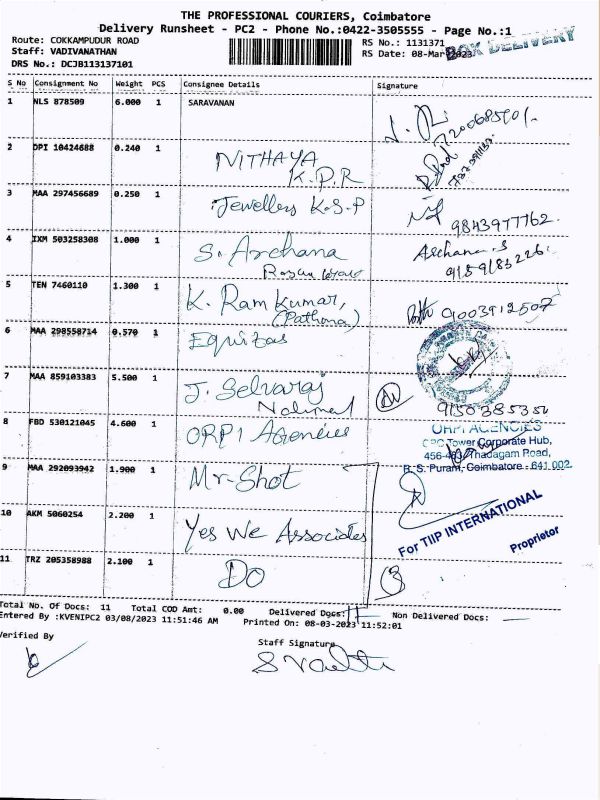 THE PROFESSIONAL COURIERS, Coimbatore
Delivery Runsheet - PC2 - Phone No.:0422-3505555 - Page No.:1
Route: COKKAMPUDUR ROAD
Staff: VADIVANATHAN
DRS No.: DCJB113137101
RS No.: 1131371
RS Date: 08-Mar-2023
BOX DELIVERY
S No Consignment No Weight PCS Consignee Details Signature
1 NLS 878509 6.000 1 SARAVANAN
2 DPI 10424688 0.240 1 NITHAYA
K.P.R
3 MAA 297456689 0.250 1 Jewellers K.S.P
9843977762
4 IXM 503258308 1.000 1 S. Archana Archana.S
9159183226
5 TEN 7460110 1.300 1 K. Ram Kumar, 9003912507
(Pathona)
6 MAA 298558714 0.570 1 Equitas
7 MAA 859103383 5.500 1 J. Selvaraj
8 FBD 530121045 4.600 1 ORPI Agencies
ORPI AGENCIES
CPC Tower Corporate Hub,
Thadagam Road,
R. S. Puram, Coimbatore - 641 002.
9 MAA 292093942 1.900 1 Mr-Shot
10 AKM 5060254 2.200 1 Yes We Associates
For TIIP INTERNATIONAL
Proprietor
11 TRZ 205358988 2.100 1 DO
Total No. Of Docs: 11 Total COD Amt: 0.00 Delivered Docs: 11 Non Delivered Docs:
Entered By :KVENIPC2 03/08/2023 11:51:46 AM Printed On: 08-03-2023 11:52:01
Verified By
Staff Signature